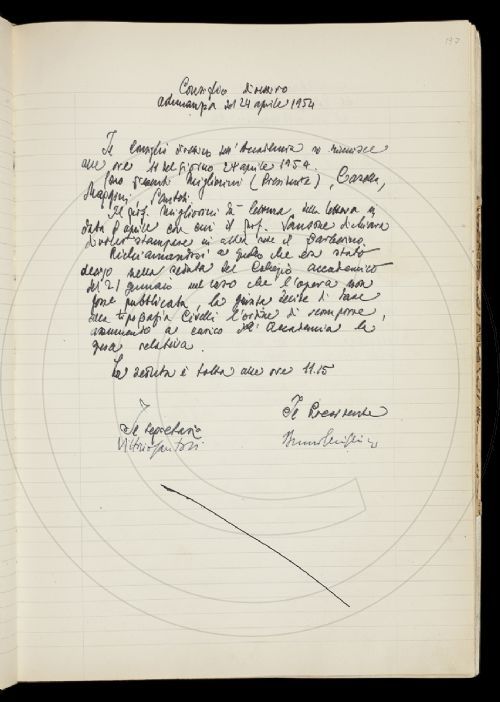 197
Consiglio direttivo
Adunanza del 24 aprile 1954
Il Consiglio direttivo dell'Accademia si riunisce
alle ore 11 del giorno 24 aprile 1954.
Sono presenti Migliorini (Presidente), Casella,
Mappini, Santoli.
Il prof. Migliorini dà lettura della lettera in
data 8 aprile con cui il prof. Sansone dichiara
di voler stampare in altra sede il Barberino.
Richiamandosi a quello che era stato
deciso nella seduta del Collegio accademico
del 21 gennaio nel caso che l'opera non
fosse pubblicata, la giunta decide di dare
alla tipografia Civelli l'ordine di scomporre,
assumendo a carico dell'Accademia la
spesa relativa.
La seduta è tolta alle ore 11.15
Il Presidente
Il segretario
Vittorio Santoli
Bruno Migliorini